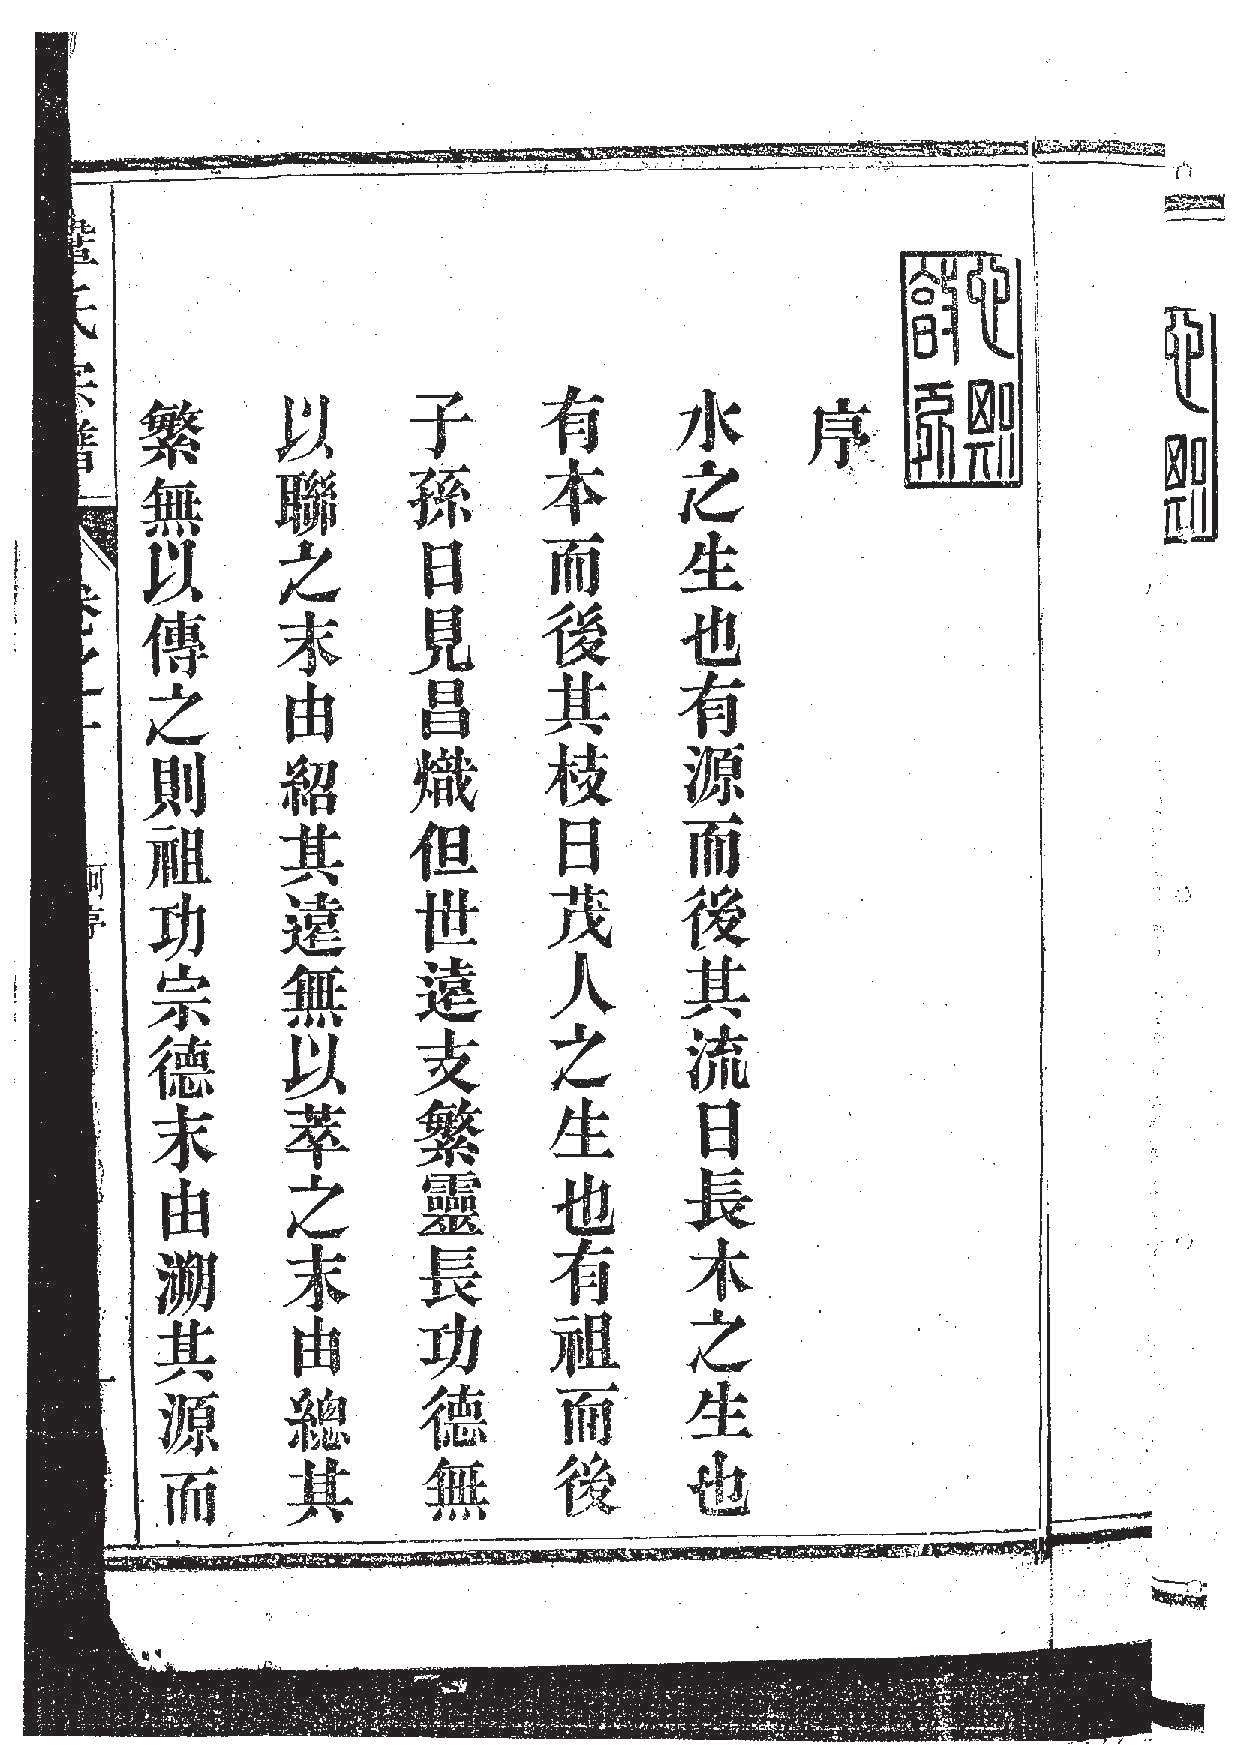 序
水之生也有源而後其流日長木之生也
有本而後其枝日茂人之生也有祖而後
子孫日見昌熾但世遠支繁靈長功德無
以聯之末由紹其遠無以萃之末由總其
繁無以傳之則祖功宗德末由溯其源而
氏宗譜